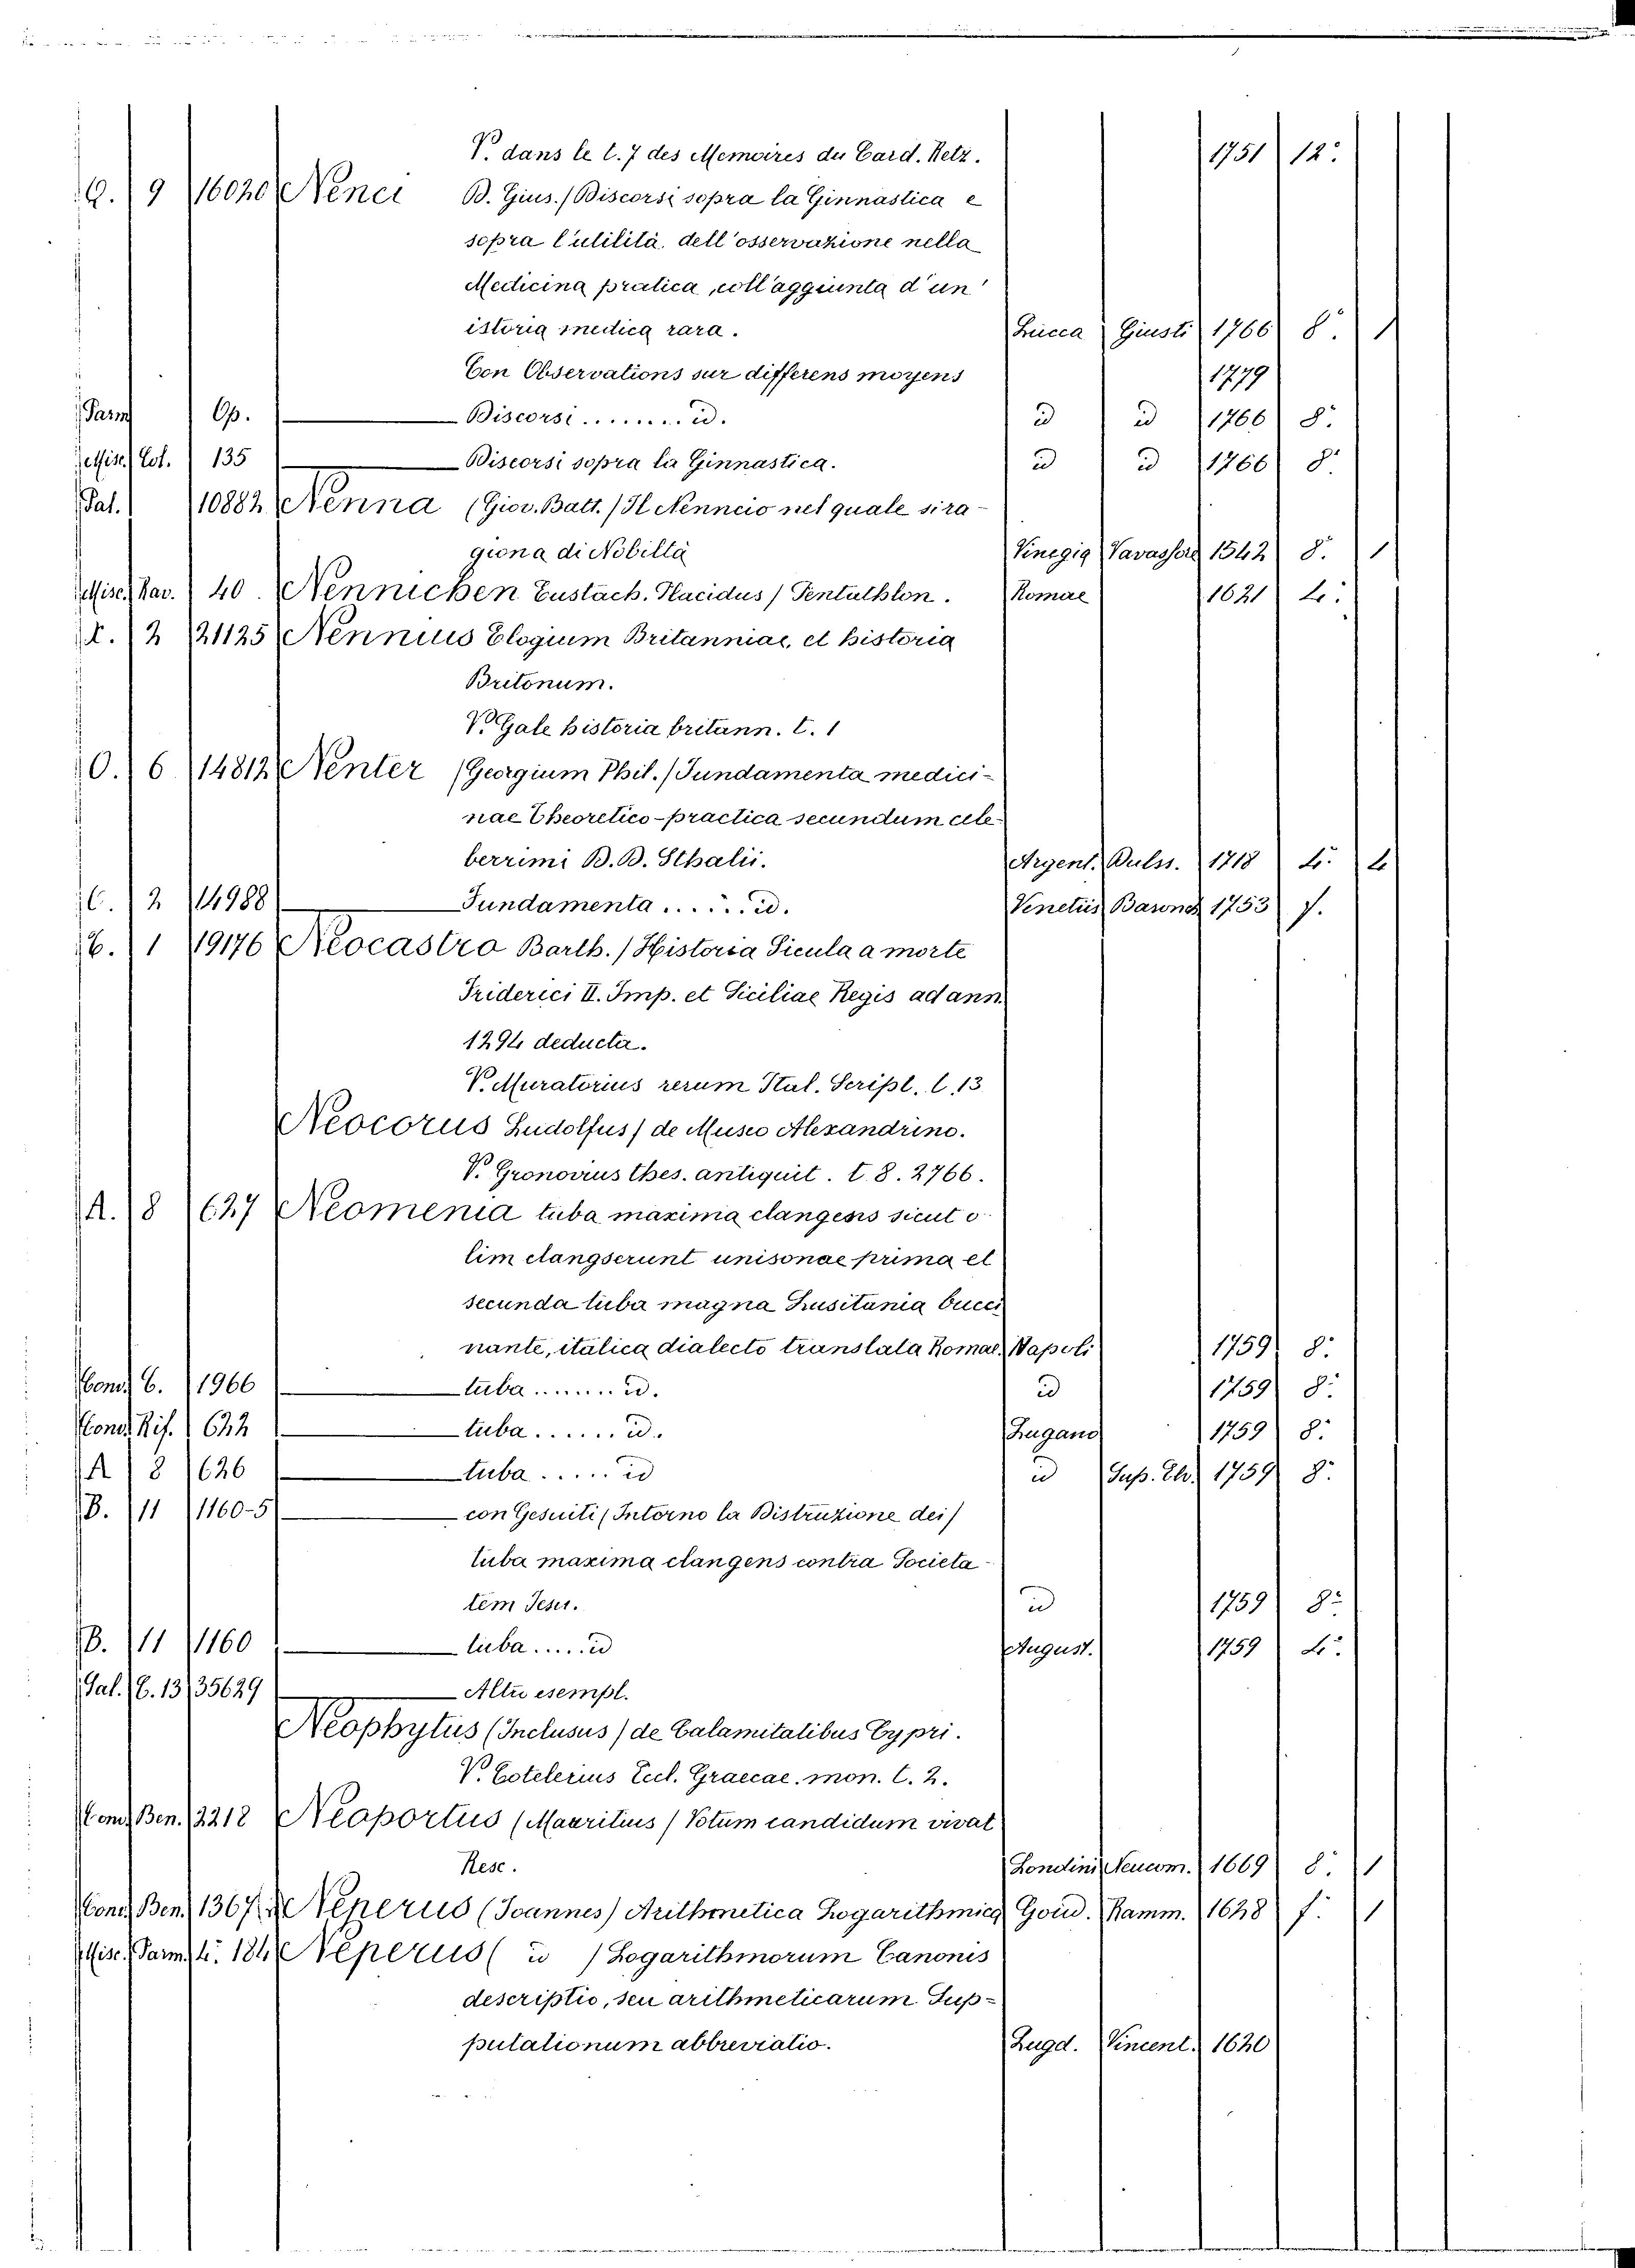 V. dans le t. 7 des Memoires du Card. Retz. 1751 12°
G. 9 16020 Nenci B. Gius. / Discorsi sopra la Ginnastica e
sopra l'utilità dell'osservazione nella
Medicina pratica, coll'aggiunta d'un'
istoria medica rara. Lucca Giusti 1766 8. 1
Con Observations sur differens moyens 1779
Parm Op. Discorsi ........ id. id id 1766 8.
Misc. Col. 135 Discorsi sopra la Ginnastica. id id 1766 8.
Pal. 10882 Nenna (Giov. Batt. / Il Nenncio nel quale si ra-
giona di Nobiltà Vinegia Vavassore 1542 8. 1
Misc. Rav. 40. Nennichen Eustach. Placidus / Pentathlon. Romae 1621 4.
X. 2 21125 Nennius Elogium Britanniae, et historia
Britonum.
V. Gale historia britann. t. 1
O. 6 14812 Nenter (Georgium Phil. / Fundamenta medici-
nae Theoretico-practica secundum cele-
berrimi D. D. Sthalii. Argent. Dulss. 1718 4. 4
C. 2 14988 Fundamenta ...... id. Venetiis Baronch 1753 f.
C. 1 19176 Neocastro Barth. / Historia Sicula a morte
Friderici II. Imp. et Siciliae Regis ad ann.
1294 deducta.
V. Muratorius rerum Ital. Script. t. 13
Neocorus Ludolfus / de Museo Alexandrino.
V. Gronovius thes. antiquit. t. 8. 2766.
A. 8 627 Neomenia tuba maxima clangens sicut o-
lim clangserunt unisonae prima et
secunda tuba magna Lusitania bucci
nante, italica dialecto translata Romae. Napoli 1759 8.
Cond. C. 1966 tuba ....... id. id 1759 8.
Cond. Rif. 622 tuba ...... id. Lugano 1759 8.
A 8 626 tuba ..... id id Sup. El. 1759 8.
B. 11 1160-5 con Gesuiti (Intorno la Distruzione dei)
tuba maxima clangens contra Societa-
tem Jesu. id 1759 8.
B. 11 1160 tuba ..... id August. 1759 4.
Pal. C. 13 35629 Altri esempl.
Neophytus (Inclusus / de Calamitatibus Cypri.
V. Cotelerius Eccl. Graecae. mon. t. 2.
Cond. Ben. 2218 Neoportus (Mauritius / Votum candidum vivat
Resc. Londini Neucom. 1669 8. 1
Cond. Ben. 1367 Neperus (Joannes) Arithmetica Logarithmica Goud. Ramm. 1628 f. 1
Misc. Parm. 4. 184 Neperus ( id / Logarithmorum Canonis
descriptio, seu arithmeticarum Sup-
putationum abbreviatio. Lugd. Vincent. 1620